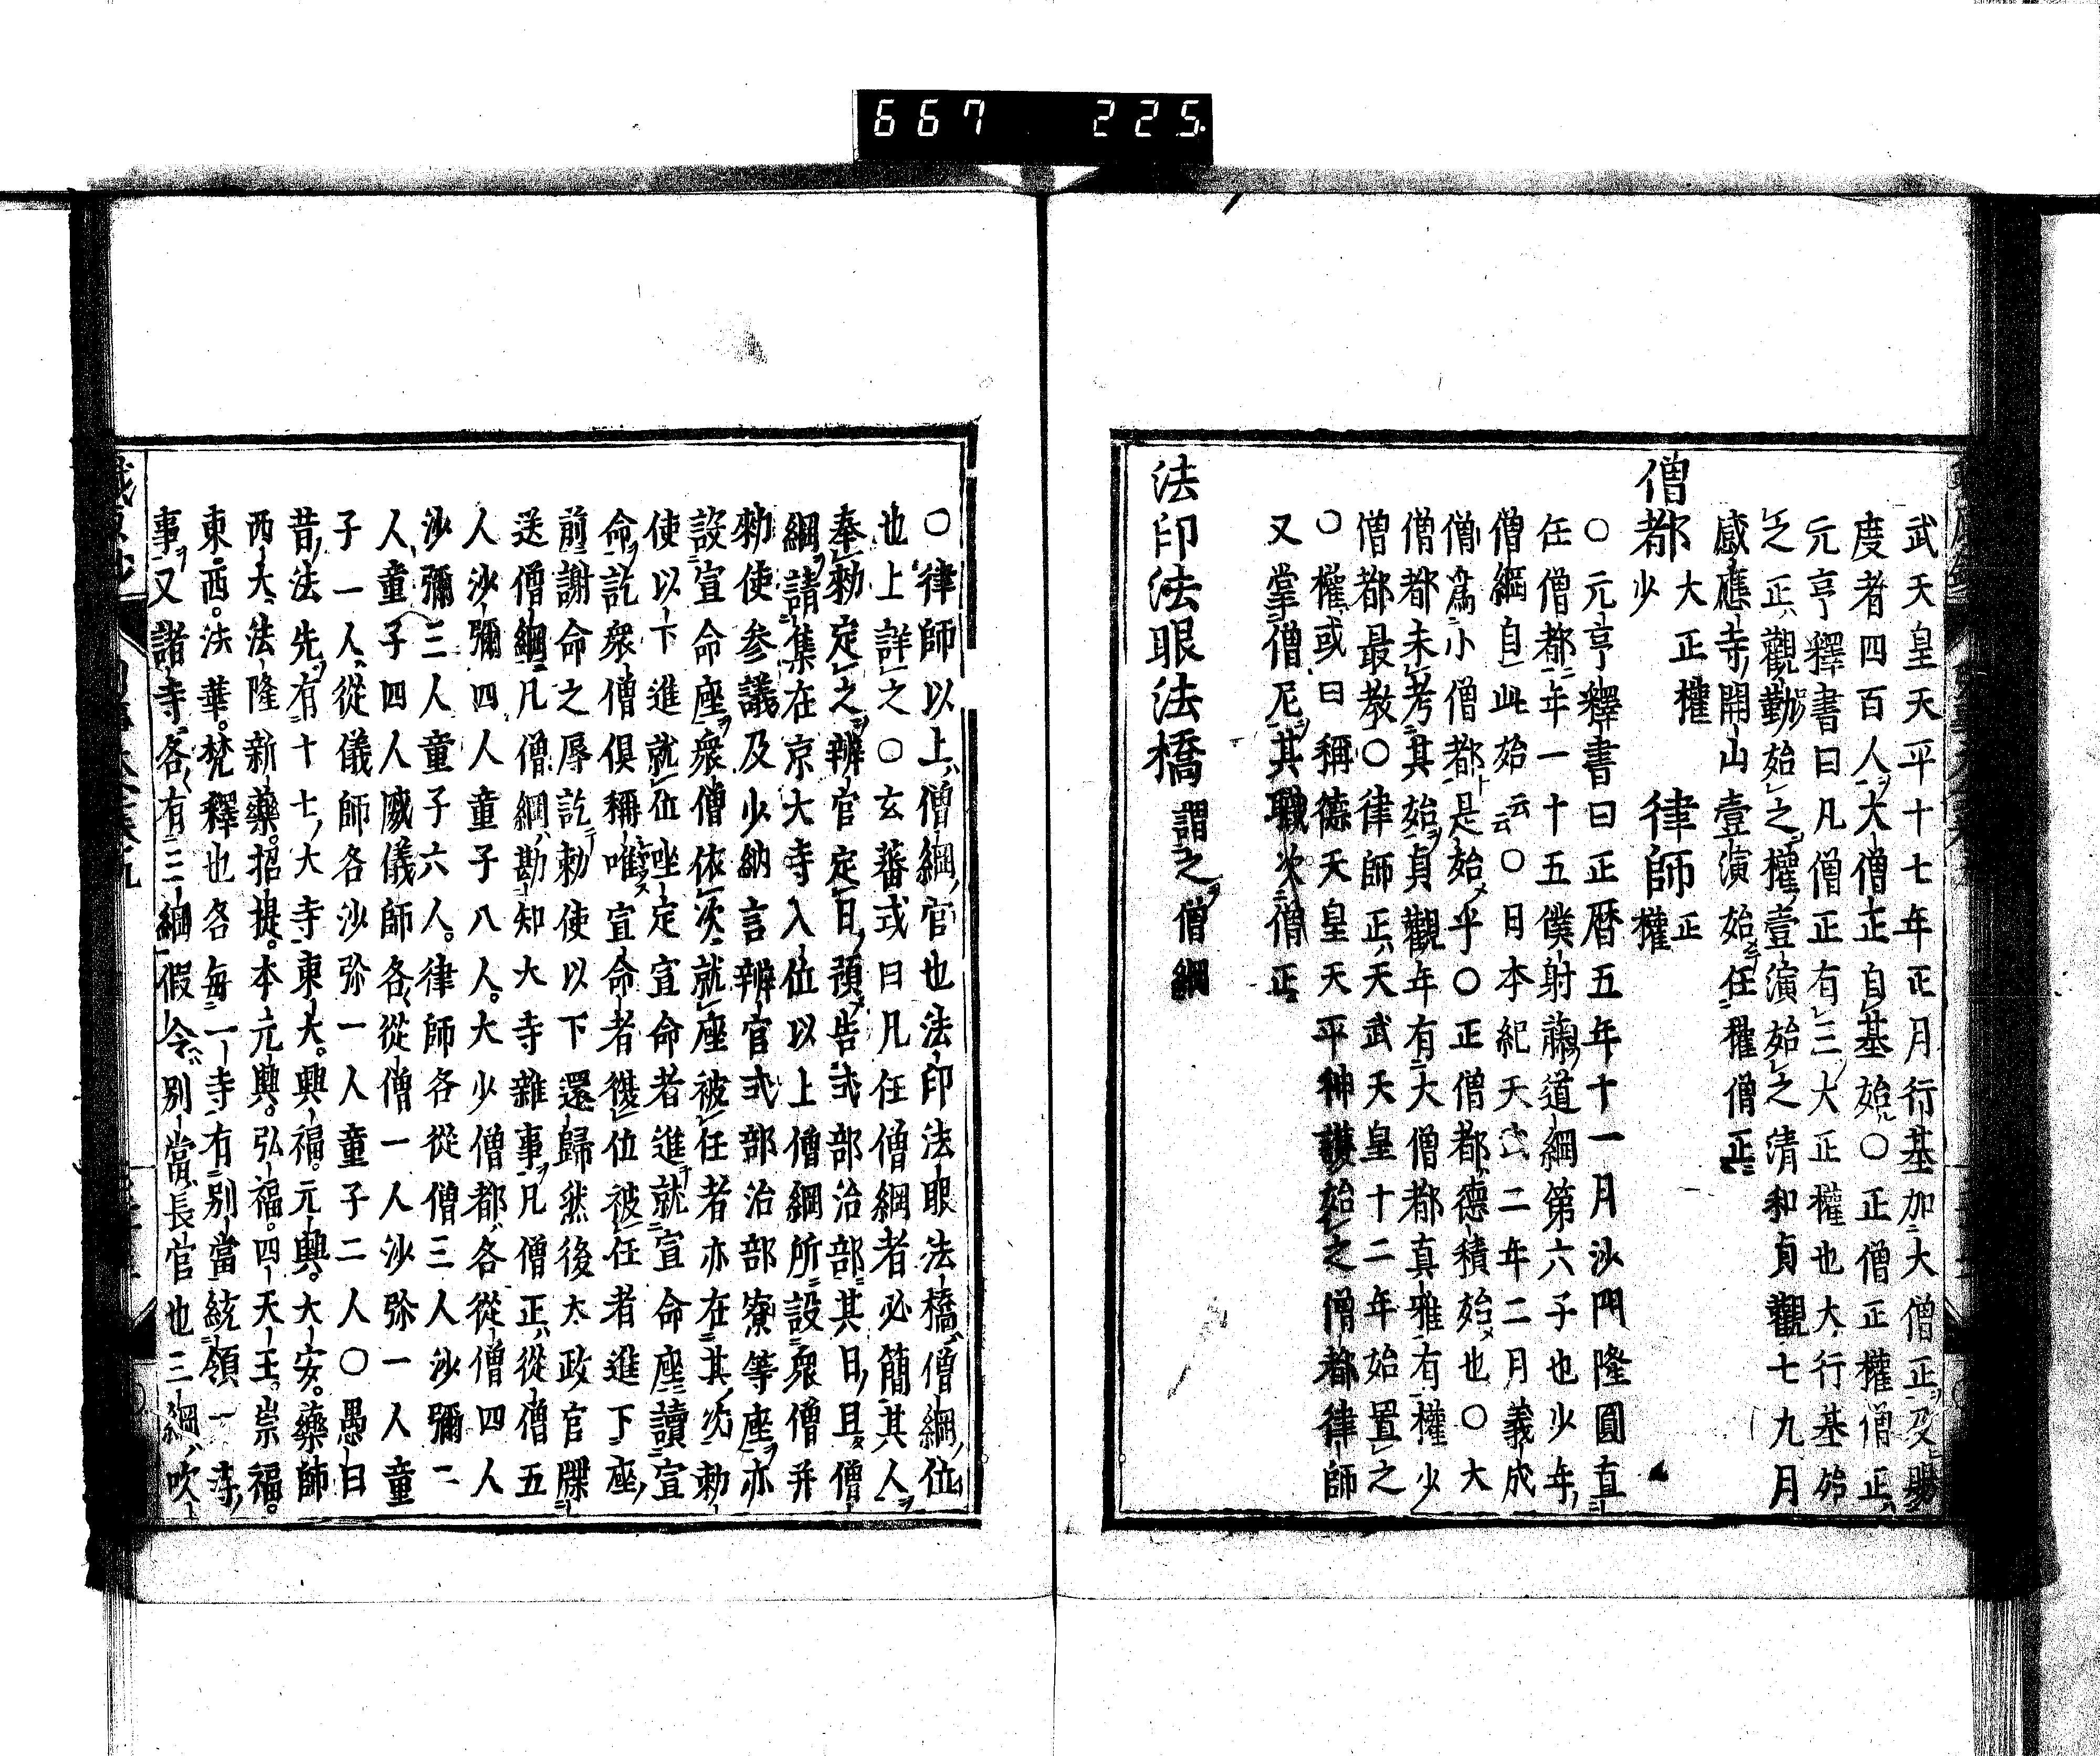 667 225
武天皇天平十七年正月行基加大僧正又賜
度者四百人大僧正自基始〇正僧正權僧正
元亨釋書曰凡僧正有三大正權也大行基始
之正觀勤始之權壹演始之清和貞觀七九月
感應寺開山壹演始任權僧正
僧都 大正權少 律師 正權
〇元亨釋書曰正暦五年十一月沙門隆圓直
任僧都年一十五僕射藤道綱第六子也少年
僧綱自此始云云〇日本紀天武二年二月義成
僧為小僧都是始乎〇正僧都德積始也〇大
僧都未考其始貞觀年有大僧都真雅有權少
僧都最教〇律師正天武天皇十二年始置之
〇權或曰稱德天皇天平神護始之僧都律師
又掌僧尼其職次僧正
法印法眼法橋 謂之僧綱
〇律師以上僧綱官也法印法眼法橋僧綱位
也上詳之〇玄蕃式曰凡任僧綱者必簡其人
奉勅定之辨官定日預告式部治部其日且僧
綱請集在京大寺入位以上僧綱所設衆僧并
勅使参議及少納言辨官式部治部寮等座亦
設宣命座衆僧依次就座被任者亦在其次勅
使以下進就位唑定宣命者進就宣命座讀宣
命訖衆僧俱稱唯宣命者復位被任者進下座
前謝命之辱訖勅使以下還歸然後太政官牒
送僧綱凡僧綱勘知大寺雜事凡僧正從僧五
人沙彌四人童子八人大少僧都各從僧四人
沙彌三人童子六人律師各從僧三人沙彌二
人童子四人威儀師各從僧一人沙弥一人童
子一人從儀師各沙弥一人童子二人〇愚曰
昔法先有十七大寺東大興福元興大安藥師
西大法隆新藥招提本元興弘福四天王崇福
東西法華梵釋也各每一寺有別當統領一寺
事又諸寺各有三綱假令別當長官也三綱吹